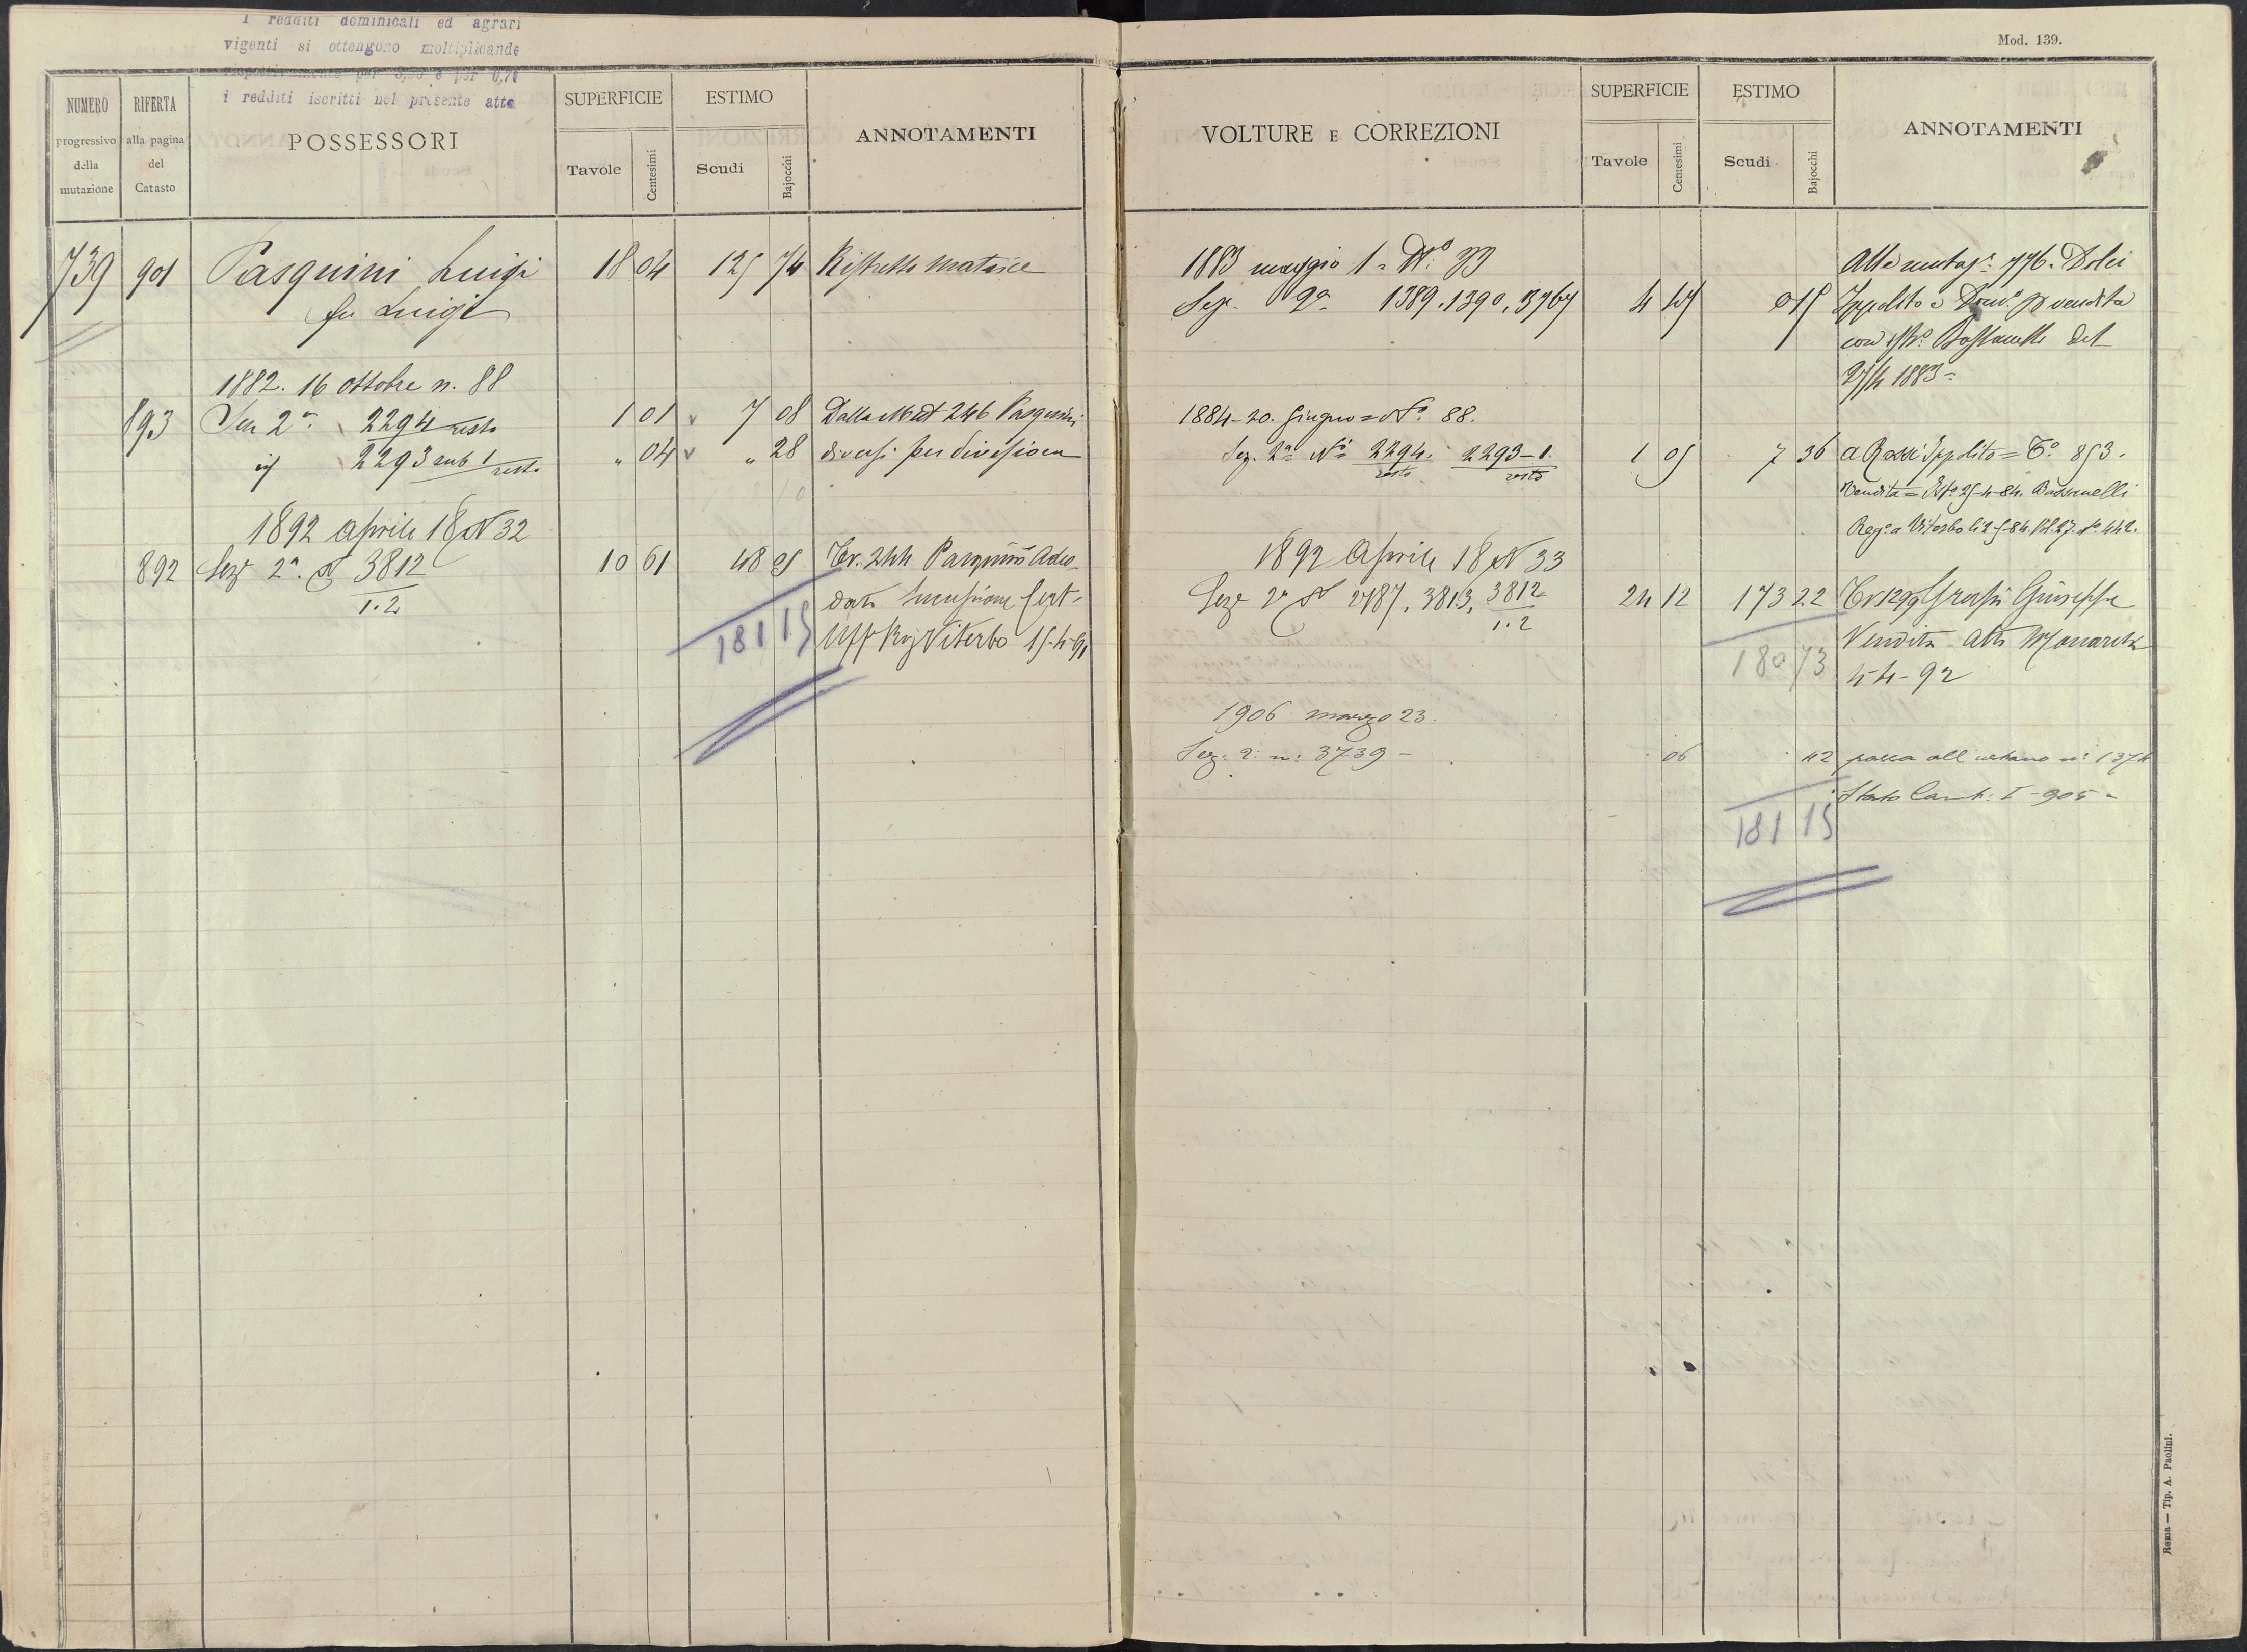 I redditi dominicali ed agrari
vigenti si ottengono moltiplicando
rispettivamente per e per
i redditi iscritti nel presente atto
Mod. 139.
NUMERO progressivo della mutazione
RIFERTA alla pagina del Catasto
POSSESSORI
SUPERFICIE
Tavole Centesimi
ESTIMO
Scudi Bajocchi
ANNOTAMENTI
739 901 Pasquini Luigi 18 04 125 74 Ristretto matrice
fu Luigi
1882. 16 ottobre n. 88
893 Sez 2ª 2294 resto 1 01 7 08 Dalla Mut 246 Pasquini
id 2293 sub 1 resto " 04 " 28 diversi per divisione
1892 Aprile 18 N 32
892 Sezº 2ª N 3812 10 61 48 05 Tr. 244 Pasquini
1.2
Successione Cert.
181 15 Viterbo 15-4-91
VOLTURE E CORREZIONI
SUPERFICIE
Tavole Centesimi
ESTIMO
Scudi Bajocchi
ANNOTAMENTI
1883 maggio 1 = Nº 33 Alla mutazº 776. Dolci
Sez. 2ª 1389. 1390. 3767 Ippolito vendita
del
1883=
1884-20. Giugno = Nº 88.
Sez. 2ª Nⁱ 2294. 2293-1. 1 05 7 36 a Rossi Ippolito = Tº 853.
resto resto
Vendita = 25-4-84. Bassanelli
Regº a Viterbo
1892 Aprile 18 N 33
Sezº 2ª N 2787. 3813. 3812 24 12 173 22 Giuseppe
1.2
Vendita Atto
180 73 4-4-92
1906 marzo 23.
Sez. 2ª nº 3739 - 06 42 passa all'urbano nº 1374
Stato Camb: I-905-
181 15
Roma — Tip. A. Paolini.